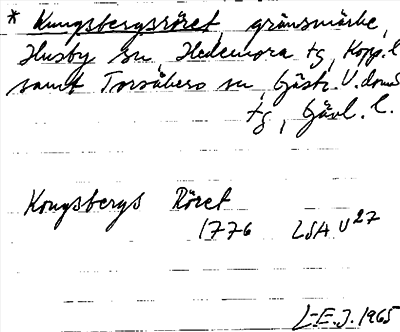 * Kungsbergsröret, gränsmärke,
Husby sn, Hedemora tg, Kopp. l.
samt Torsåkers sn, Gästr. V. doms
tg, Gävl. l.
Kongsbergs Röret
1776 LSA U27
L-E. J. 1965